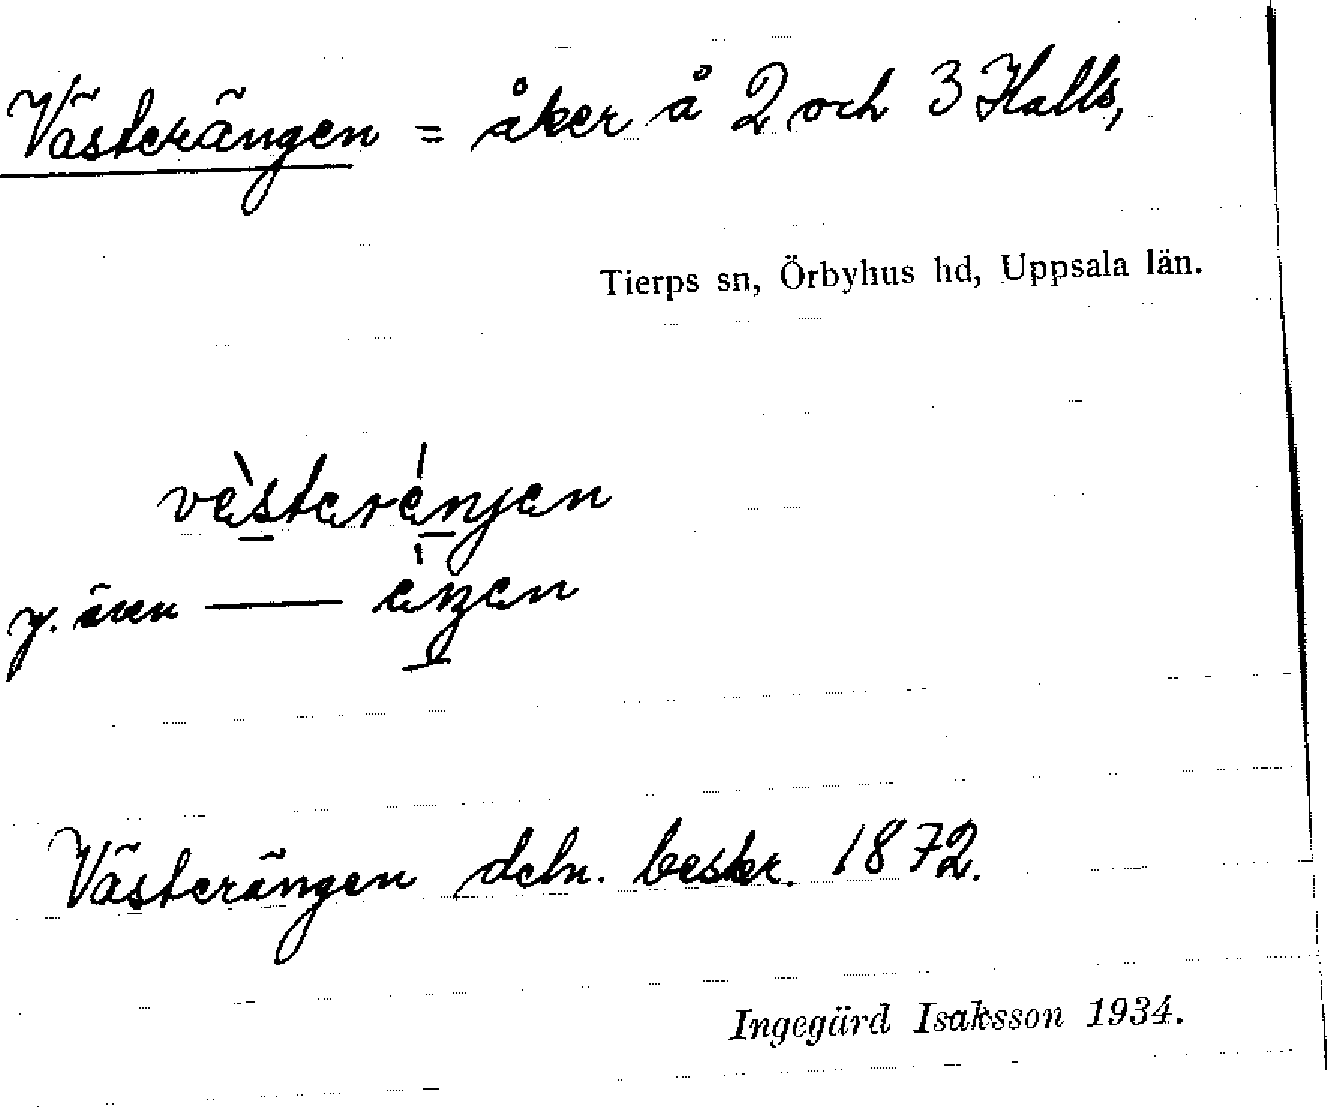 Västerängen = åker å 2 och 3 Halls,
Tierps sn, Örbyhus hd, Uppsala län.
västeränjen
y. även — äŋen
Västerängen deln. beskr. 1872.
Ingegärd Isaksson 1934.